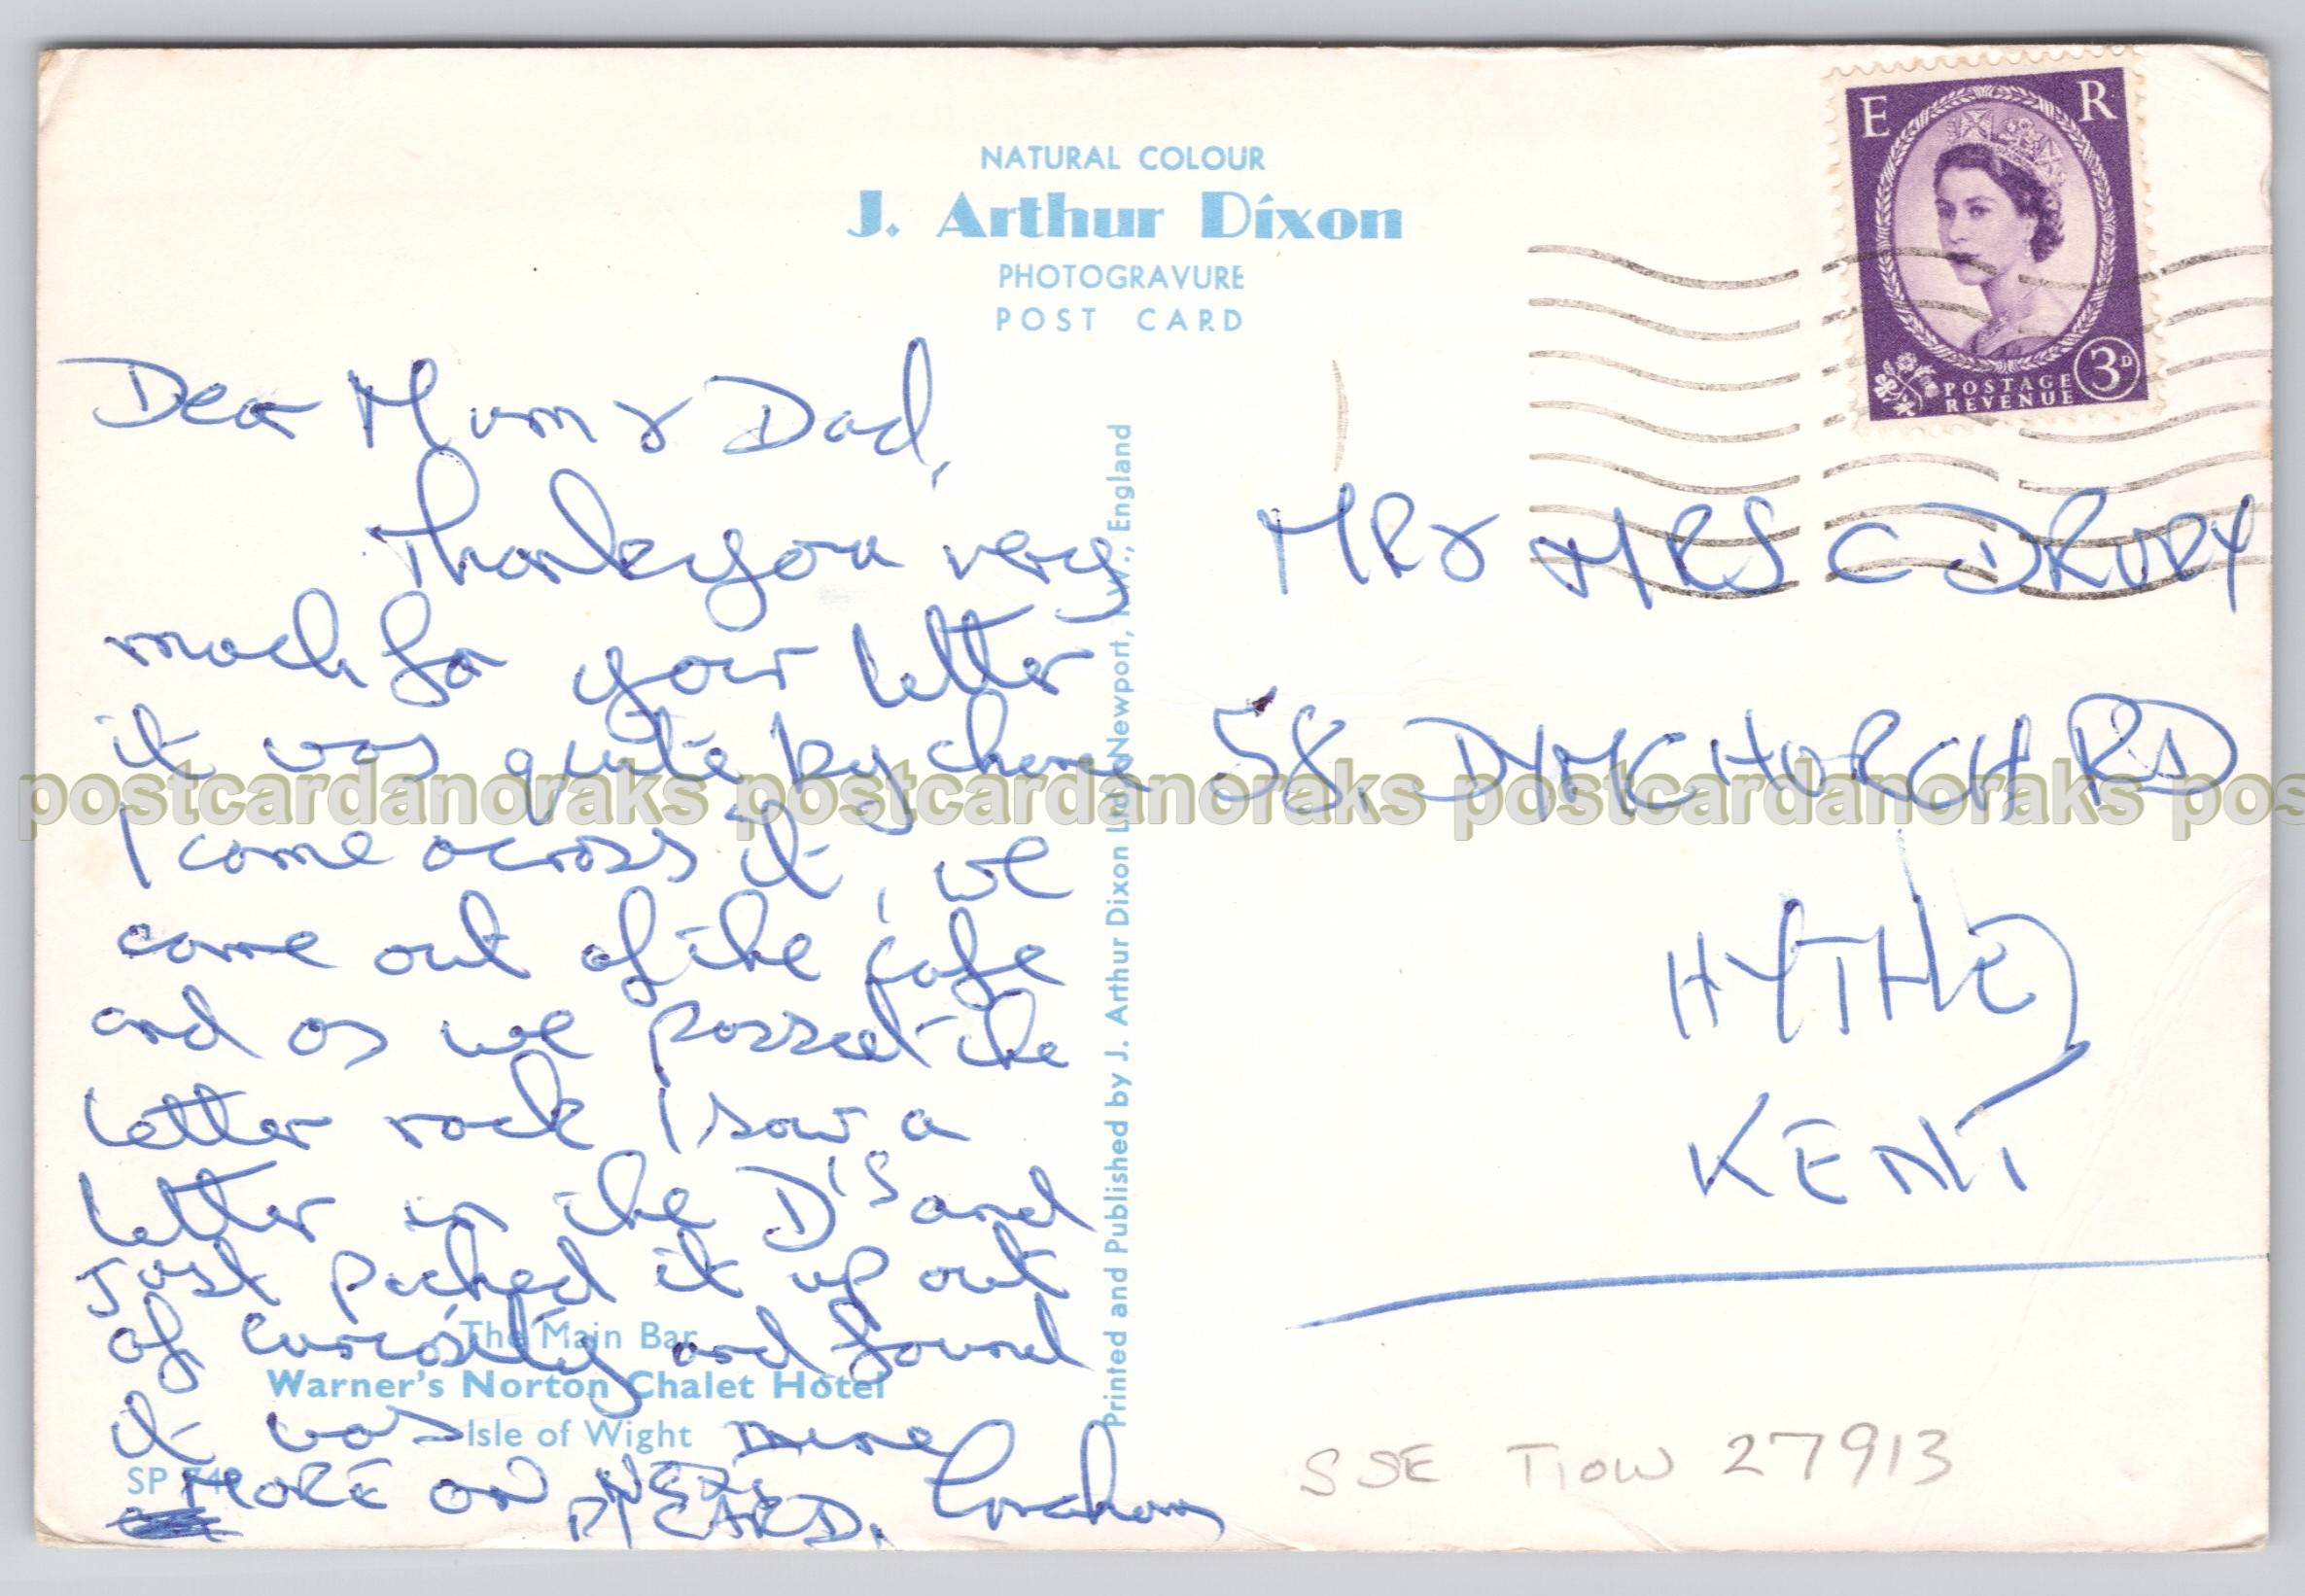 NATURAL COLOUR
J. Arthur Dixon
PHOTOGRAVURE
POST CARD
E R
POSTAGE
REVENUE
3D
Dear Mum & Dad,
Thankyou very
much for your letter
it was quite by chance
I came across it, we
came out of the cafe
and as we passed the
letter rack I saw a
letter in the D's and
just picked it up out
of curiosity and found
it was mine
MORE ON NEXT
P/CARD. Graham
The Main Bar
Warner's Norton Chalet Hotel
Isle of Wight
SP
Printed and Published by J. Arthur Dixon Ltd., Newport, I.W., England
MR & MRS C DRURY
58, DYMCHURCH RD
HYTHE
KENT
SSE TIOW 27913
postcardanoraks postcardanoraks postcardanoraks pos